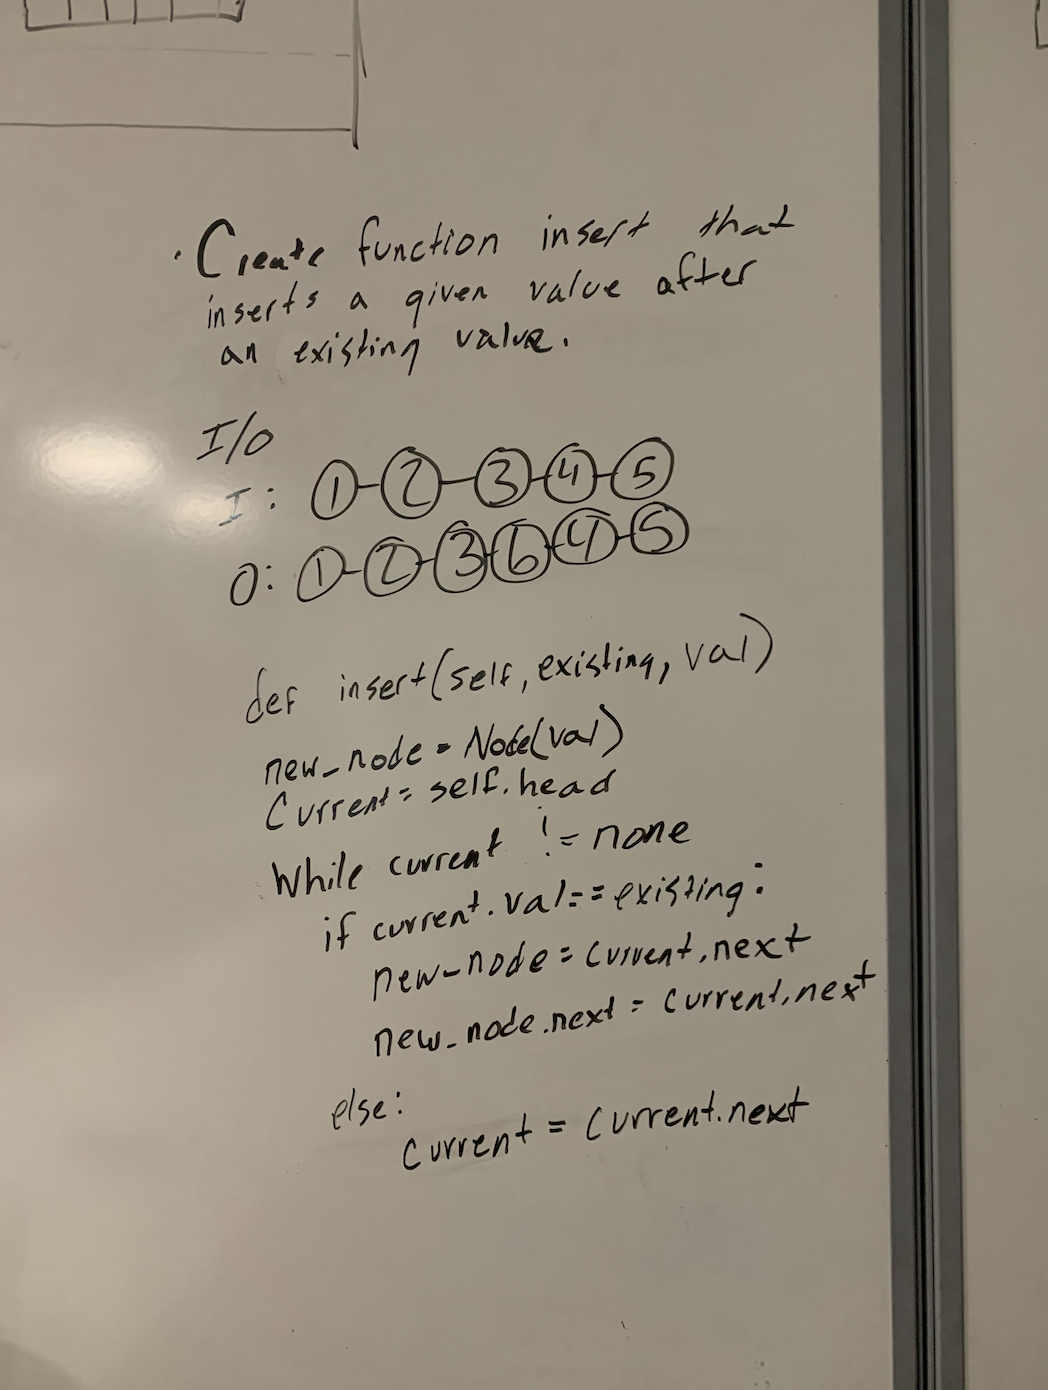 · Create function insert that
inserts a given value after
an existing value.
I/O
I: 1-2-3-4-5
O: 1-2-3-6-4-5
def insert(self, existing, val)
new_node = Node(val)
Current = self.head
While current != none
if current.val == existing:
new_node = current.next
new_node.next = current.next
else:
current = current.next